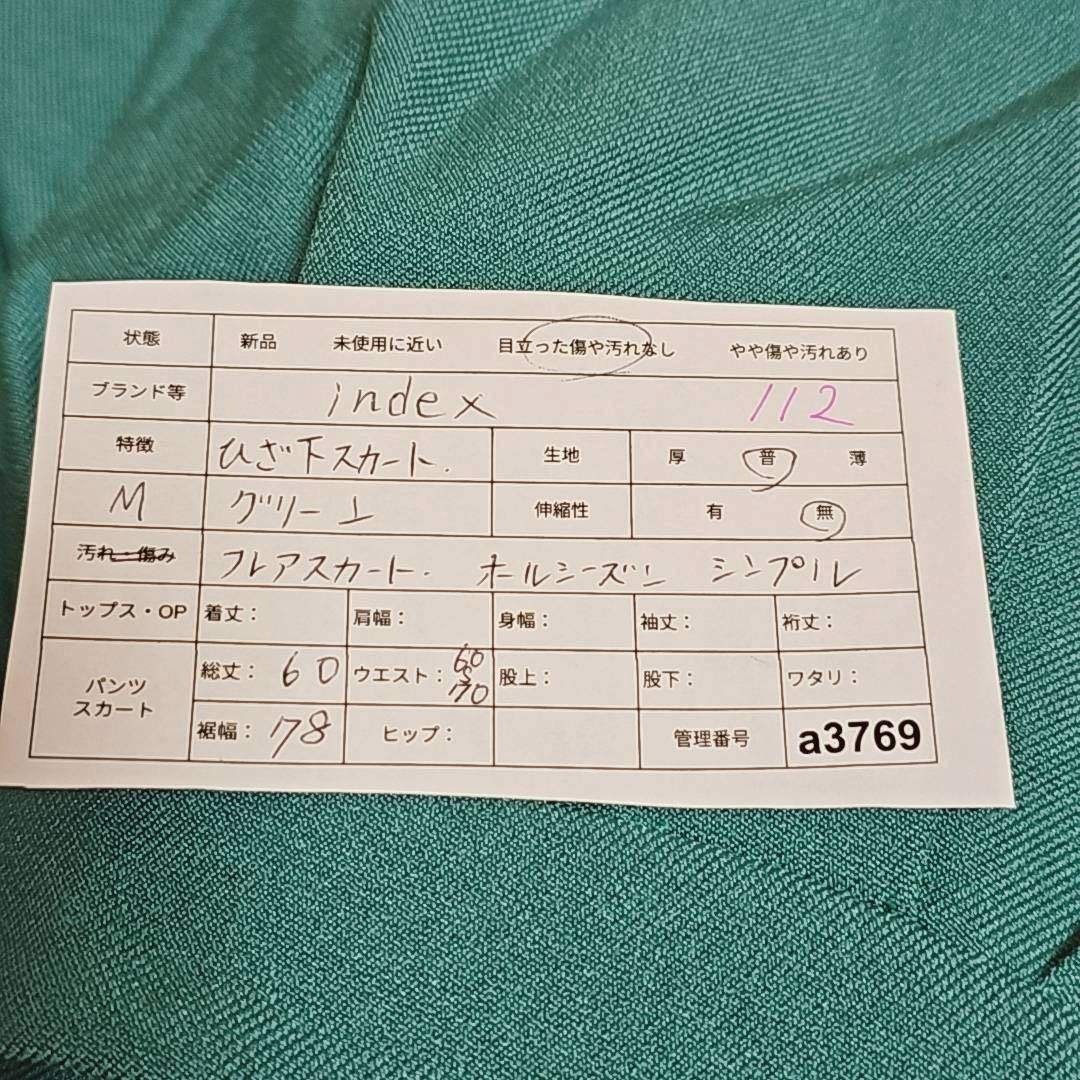 状態 新品 未使用に近い 目立った傷や汚れなし やや傷や汚れあり
ブランド等 index 112
特徴 ひざ下スカート. 生地 厚 普 薄
M グリーン 伸縮性 有 無
汚れ・傷み フレアスカート. オールシーズン シンプル
トップス・OP 着丈: 肩幅: 身幅: 袖丈: 裄丈:
パンツ スカート 総丈: 60 ウエスト: 60 S 70 股上: 股下: ワタリ:
裾幅: 178 ヒップ: 管理番号 a3769